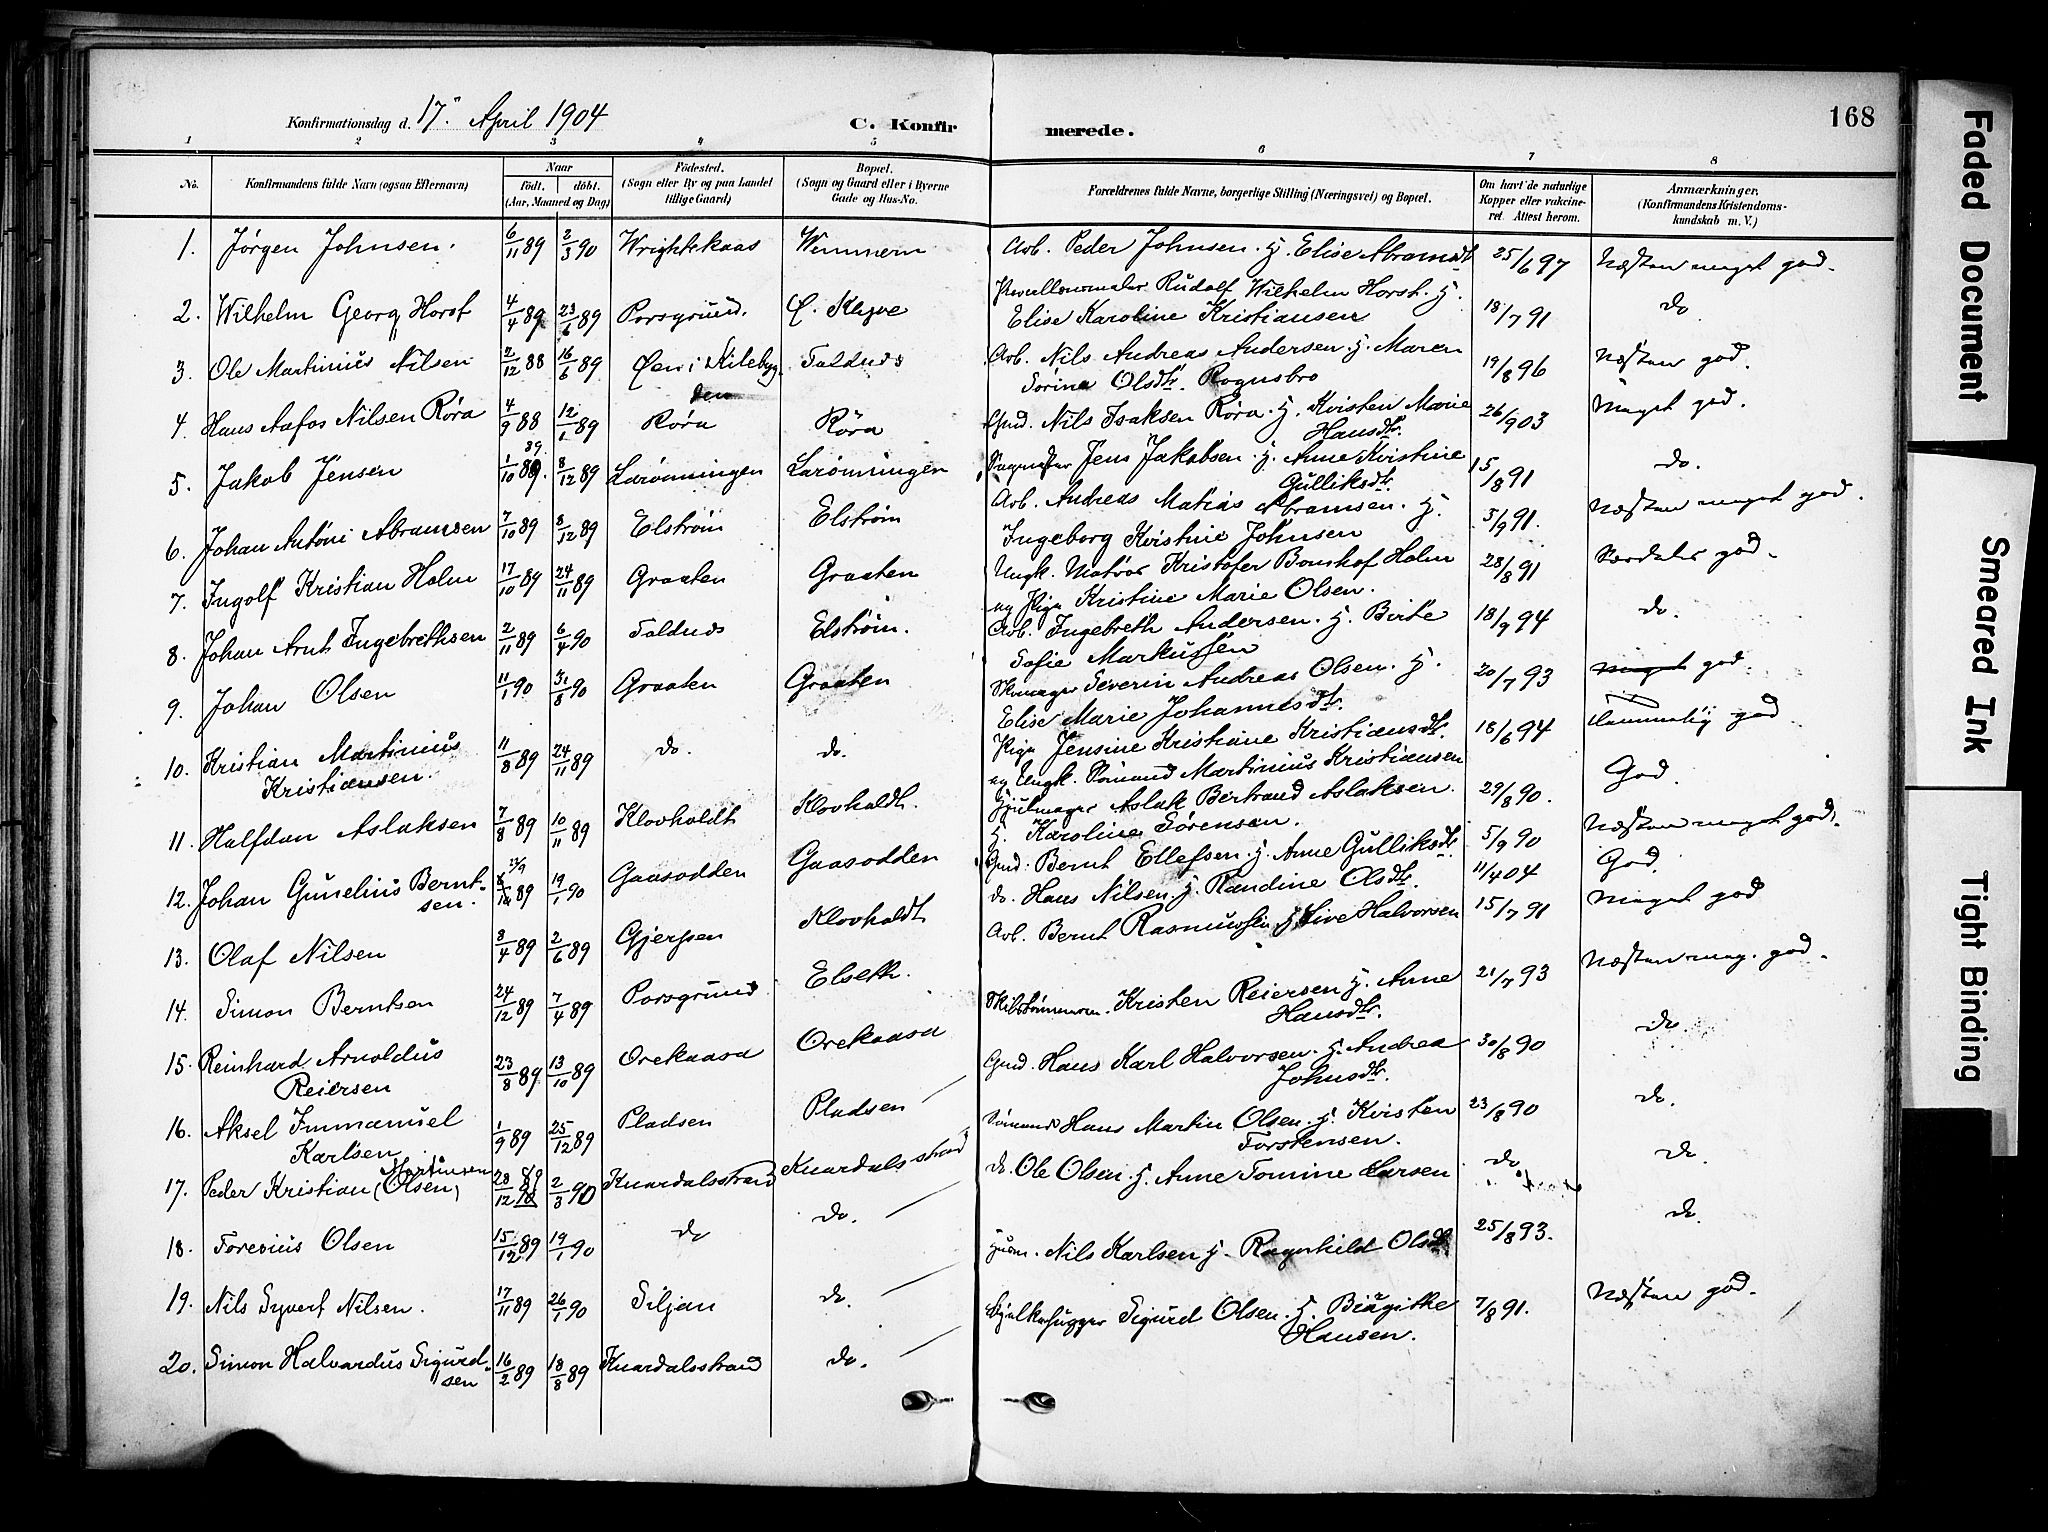 Konfirmationsdag d. 17. April 1904
C. Konfirmerede.
168
1 2 3 4 5 6 7 8
No. Konfirmandens fulde Navn (ogsaa Efternavn) Naar födt. döbt. (Aar, Maaned og Dag) Födested. (Sogn eller By og paa Landet tillige Gaard) Bopæl. (Sogn og Gaard eller i Byerne Gade og Hus-No. Forældrenes fulde Navne, borgerlige Stilling (Næringsvei) og Bopæl. Om havt de naturlige Kopper eller vakcineret. Attest herom. Anmærkninger. (Konfirmandens Kristendomskundskab m. V.)
1. Jörgen Johnsen. 6/11 89 2/3 90 Wrightskaas Wimmern Arb. Peder Johnsen. H. Elise Abramsdtr 25/6 97 Næsten meget god.
2. Wilhelm Georg Horst 4/4 89 23/6 89 Porsgrund. Ø. Klyve Rudolf Wilhelm Horst. H.
Elise Karoline Kristiansen 18/7 91 do
3. Ole Martinius Nilsen 2/12 88 16/6 89 Øen i Kilebyg-
den Foldnes Arb. Nils Andreas Andersen. H. Maren
Sorine Olsdtr. Rognsbro 19/8 96 Næsten god.
4. Hans Aafos Nilsen Röra 4/9 88 12/1 89 Röra Röra Gmd. Nils Isaksen Röra. H. Kristen Marie
Hansdtr. 26/9 03 Meget god.
5. Jakob Jensen 1/10 89. 8/12 89 Larönningen Larönningen Jens Jakobsen. H. Anne Kristine
Gulliksdtr. 15/8 91 do.
6. Johan Antöni Abramsen 7/10 89 8/12 89 Elström Elström Arb. Andreas Matias Abramsen. H.
Ingeborg Kristine Johnsen 5/9 91. Næsten meget god.
7. Ingolf Kristian Holm 17/10 89 24/11 89 Graaten Graaten Ungk. Matros Kristofer Holm
og Pige Kristine Marie Olsen. 28/8 91 Særdeles god.
8. Johan Arnt Ingebrethsen 2/11 89 6/4 90 Foldnes Elström. Arb. Ingebreth Andersen. H. Birte
Sofie Markussen 18/9 94 do.
9. Johan Olsen 11/1 90 31/8 90 Graaten Graaten Skomager Severin Andreas Olsen. H.
Elise Marie Johannesdtr. 20/7 93 meget god.
10. Kristian Martinius
Kristiansen. 11/8 89 24/11 89 do. do. Pige Jensine Kristiane Kristiansdtr.
og Ungk. Sömand Martinius Kristiansen 18/6 94 temmelig god
11. Halfdan Aslaksen 7/8 89 10/11 89 Klovholdt Klovholdt. Hjulmager Aslak Bertrand Aslaksen.
H. Karoline Sörensen. 29/8 90. God.
12. Johan Gunelius Bernt-
sen. 23/9 89 19/1 90 Gaasodden Gaasodden Gmd. Bernt Ellefsen. H. Anne Gulliksdtr. 5/9 90 Næsten meget god.
13. Olaf Nilsen 8/4 89 2/6 89 Gjerpen Klovholdt do. Hans Nilsen. H. Randine Olsdtr. 11/4 04 God.
14. Simon Berntsen 24/12 89 7/4 89 Porsgrund Elseth. Arb. Bernt Rasmussen H. Live Halvorsen 15/7 91 Meget god
15. Reinhard Arnoldus
Reiersen 23/8 89 13/10 89 Orekaasa Orekaasa Skibstömmerm. Kristen Reiersen H. Anne
Hansdtr. 21/7 93 Næsten meg. god.
16. Aksel Immanuel
Karlsen 1/9 89 25/12 89 Pladsen Pladsen Gmd. Hans Karl Halvorsen. H. Andrea
Johnsdtr. 30/8 90 do
17. Peder Kristian (Olsen) Martinsen 28/12 89 2/3 90 Knardalsstrand Knardalsstrand Sömand Hans Martin Olsen. H. Kristen
Torstensen. 23/8 90 do.
18. Toresius Olsen 15/12 89 19/1 90 do do. do. Ole Olsen. H. Anne Tomine Larsen do do.
19. Nils Syvert Nilsen. 17/11 89 26/1 90 Siljan do. Husm. Nils Karlsen H. Ragnhild Olsdtr 25/8 93. do.
20. Simon Halvardus Sigurd-
sen 16/2 89 18/8 89 Knardalsstrand do. Bjelkehugger Sigurd Olsen. H. Birgithe
Hansen. 7/8 91. Næsten god.
Faded Document
Smeared Ink
Tight Binding